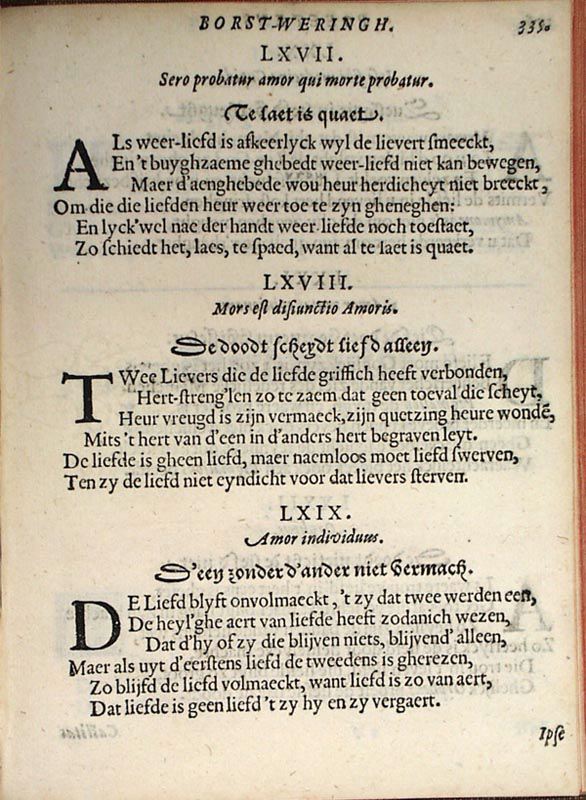 BORST-WERINGH. 335.
LXVII.
Sero probatur amor qui morte probatur.
Te laet is quaet.
ALs weer-liefd is afkeerlyck wyl de lievert smeeckt,
En 't buyghzaeme ghebedt weer-liefd niet kan bewegen,
Maer d'aenghebede wou heur herdicheyt niet breeckt,
Om die die liefden heur weer toe te zyn gheneghen:
En lyck'wel nae der handt weer-liefde noch toestaet,
Zo schiedt het, laes, te spaed, want al te laet is quaet.
LXVIII.
Mors est disiunctio Amoris.
De doodt scheydt liefd alleen.
TWee Lievers die de liefde griffich heeft verbonden,
Hert-streng'len zo te zaem dat geen toeval die scheyt,
Heur vreugd is zijn vermaeck, zijn quetzing heure wondē,
Mits 't hert van d'een in d'anders hert begraven leyt.
De liefde is gheen liefd, maer naemloos moet liefd swerven,
Ten zy de liefd niet eyndicht voor dat lievers sterven.
LXIX.
Amor individuus.
D'een zonder d'ander niet vermach.
DE Liefd blyft onvolmaeckt, 't zy dat twee werden een,
De heyl'ghe aert van liefde heeft zodanich wezen,
Dat d'hy of zy die blijven niets, blijvend' alleen,
Maer als uyt d'eerstens liefd de tweedens is gherezen,
Zo blijfd de liefd volmaeckt, want liefd is zo van aert,
Dat liefde is geen liefd 't zy hy en zy vergaert.
Ipse